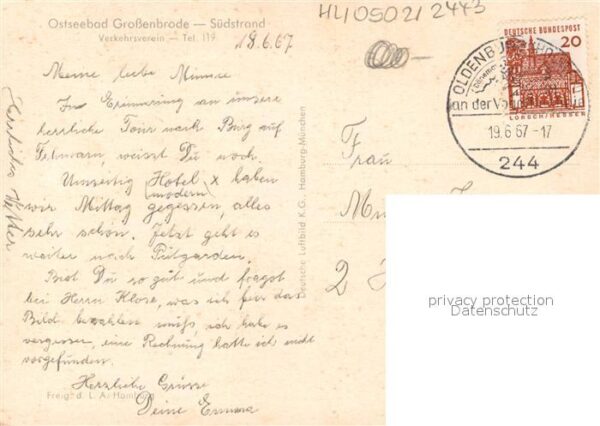 Ostseebad Großenbrode — Südstrand
Verkehrsverein — Tel. 119
HL10S021 2443
18.6.67
Meine liebe Minnie
In Erinnerung an unsere
herrliche Tour nach Burg auf
Fehmarn, weisst Du noch.
Hotel x haben
modern
wir Mittag gegessen, alles
sehr schön. Jetzt geht es
weiter nach Putgarden.
Bist Du so gut und fragst
bei Herrn Klose, was ich für das
Bild bezahlen muß, ich habe es
vergessen, eine Rechnung hatte ich nicht
vorgefunden.
Herzliche Grüsse
Deine Emma
Herrliches Wetter
Freig. d. L. A. Hamburg
Deutsche Luftbild K.G. Hamburg-München
Frau
2
DEUTSCHE BUNDESPOST
20
LORSCH/HESSEN
OLDENBURG
an der Vogelfluglinie
19.6.67-17
244
privacy protection
Datenschutz